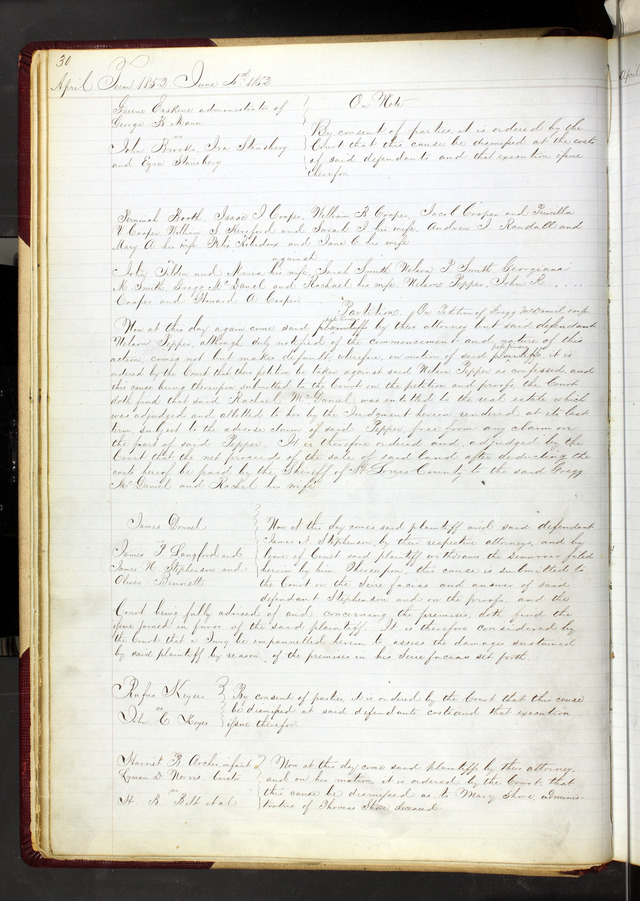 30
April Term 1852 June 4th 1852
Greene Erskine administrator of
George H Mann
vs
John Brooks, Ira Stansbery
and Ezra Stansbery
On Note
By consent of parties it is ordered by the
Court that this cause be dismissed at the costs
of said defendants and that execution issue
therefor
Jeremiah Booth Isaac I Cooper, William R Cooper, Jacob Cooper and
V Cooper William S Hereford and Sarah I his wife Andrew I Randall and
Mary A his wife and Jane C his wife
against
John Tilden and Maria his wife, Sarah Smith Nelson T Smith Georgiana
M Smith, Gregg McDaniel and Rachael his wife Nelson Pepper, John R
Cooper and Howard A Cooper
Partition On Petition of Gregg McDaniel
Now at this day again come said plaintiff by their attorney but said defendant
Nelson Pepper, although duly notified of the commencement and nature of this
action, comes not but makes default wherefore, on motion of said plaintiffs petitioners it is
ordered by the Court that this petition be taken against said Nelson Pepper as confessed, and
this cause being thereupon submitted to the Court on the petition and proofs the Court
doth find that said Rachael McDaniel was entitled to the real estate which
was adjudged and allotted to her by the Judgment herein rendered at its last
term, subject to the adverse claim of said Pepper, free from any claim on
the part of said Pepper. It is therefore ordered and adjudged by the
Court that the net proceeds of the sale of said land after deducting the
costs hereof be paid by the Sheriff of St Louis County to the said Gregg
McDaniel and Rachel his wife
James Dowel
vs
James P Langford and
James N Stephenson and
Oliver Bennett
Now at this day comes said plaintiff and said defendant
James N Stephenson by their respective attorneys, and by
leave of Court said plaintiff withdraws the Demurrer filed
herein by him Whereupon the cause is submitted to
the Court on the Scire facias and answer of said
defendant Stephenson and on the proofs and the
Court being fully advised of and concerning the premises, doth find the
issue joined in favor of the said plaintiff. It is therefore considered by
the Court that a Jury be impannelled herein to assess the damages sustained
by said plaintiff by reason of the premises in his Scire facias set forth.
Rufus Keyser
vs
John C Keyser
By consent of parties it is ordered by the Court that this cause
be dismissed at said defendants costs and that execution
issue therefor
Harriet B Archer, infant
Lyman D Norris Curator
vs
H. R. Belt et al
Now at this day come said plaintiff by their attorney
and on his motion, it is ordered by the Court that
this cause be dismissed as to Mary Shore, adminis-
tratrix of Thomas Shore deceased
April